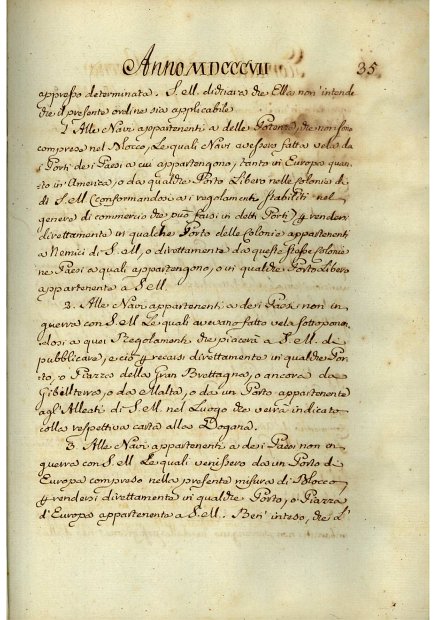 Anno MDCCCVII
35
appresso determinata. S. M. dichiara che Ella non intende
che il presente ordine sia applicabile
1. Alle Navi appartenenti a delle Potenze, che non sono
comprese nel Blocco, Le quali Navi avessero fatta vela da
Porti de i Paesi a cui appartengono, tanto in Europa quan
to in America, o da qualche Porto Libero nelle Colonie di
di S. M. (conformandosi a i regolamenti stabiliti nel
genere di commercio che può farsi in detti Porti) p rendersi
direttamente in qualche Porto delle Colonie appartenenti
a Nemici di S. M., o direttamente da queste stesse Colonie
ne Paesi a quali appartengono, o in qualche Porto Libero
appartenente a S. M.
2. Alle Navi appartenenti a dei Paesi non in
guerra con S. M. Le quali avevano fatto vela sottoponen,
dosi a quei Regolamenti che piacerà a S. M. de
pubblicare, e ciò p recarsi direttamente in qualche Por
to, o Piazza della Gran Brettagna, o ancora da
Gibilterra, o da Malta, o da un Porto appartenente
agl'Alleati di S. M. nel Luogo che verrà indicato
colla respettiva carta alla Dogana.
3. Alle Navi appartenenti a dei Paesi non in
guerra con S. M. Le quali venissero da un Porto di
Europa compreso nella presente misura di Blocco
p rendersi direttamente in qualche Porto, o Piazza
d'Europa appartenente a S. M. Ben' inteso, che l'